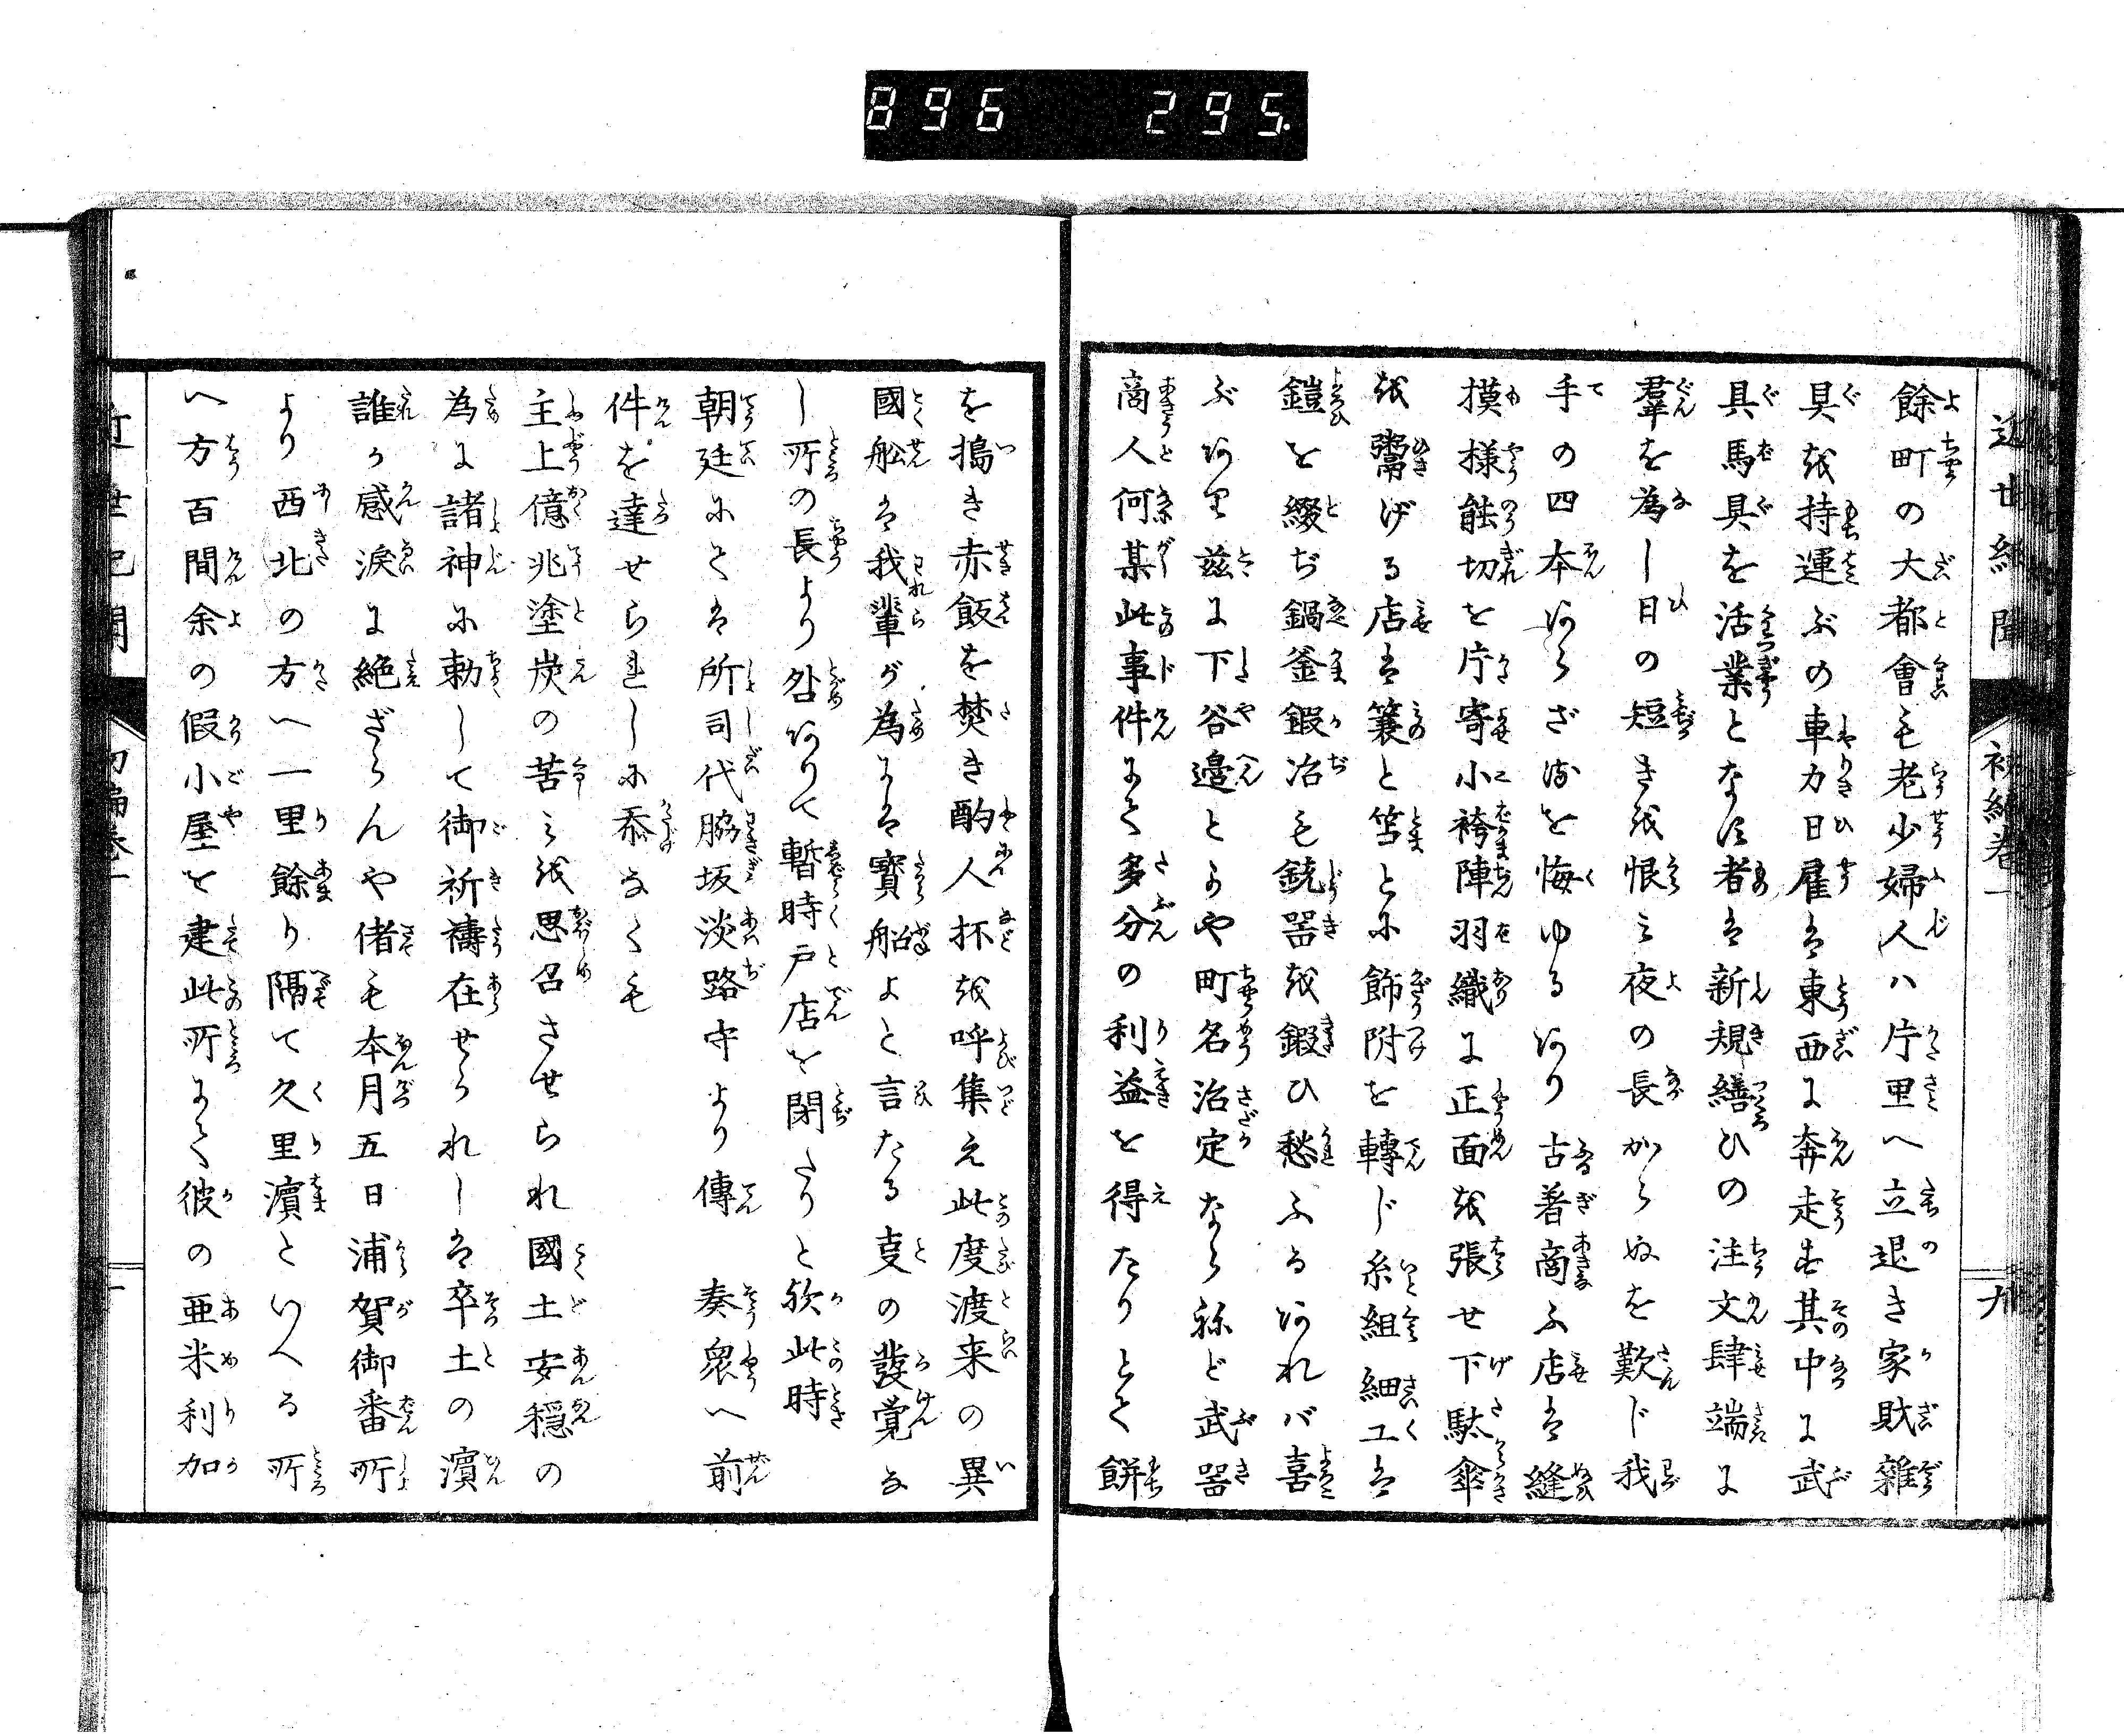 896 295.
近世紀聞 初編巻一 九
餘町の大都會も老少婦人ハ片里へ立退き家財雜
具を持運ぶの車力日雇は東西に奔走す其中に武
具馬具を活業となす者は新規繕ひの注文肆端に
羣を為し日の短きを恨み夜の長からぬを歎じ我
手の四本あらざるを悔ゆるあり古着商ふ店は縫
摸様能切を片寄小袴陣羽織に正面を張せ下駄傘
を鬻げる店は簑と笘とに飾附を轉じ糸組細工は
鎧を綴ぢ鍋釜鍜冶も銃器を鍜ひ愁ふるあれバ喜
ぶあり茲に下谷邉とかや町名治定ならねど武器
商人何某此事件にて多分の利益を得たりとて餅
を搗き赤飯を焚き酌人抔を呼集え此度渡来の異
國舩は我輩が為には寳船よと言たる㕝の發覚な
し所の長より咎ありて暫時戸店を閉たりと欤此時
朝廷にては所司代脇坂淡路守より傳 奏衆へ前
件を達せられしに忝なくも
主上億兆塗炭の苦みを思召させられ國土安穏の
為に諸神に勅して御祈禱在せられしは卒土の濵
誰か感涙に絶ざらんや偖も本月五日浦賀御番所
より西北の方へ一里餘り隔て久里濵といへる所
へ方百間余の假小屋を建此所にて彼の亜米利加
近世紀聞 初編巻一